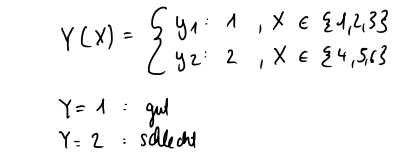 Y(X) = { y1: 1 , X ∈ {1,2,3}
y2: 2 , X ∈ {4,5,6}
Y = 1 : gut
Y = 2 : schlecht